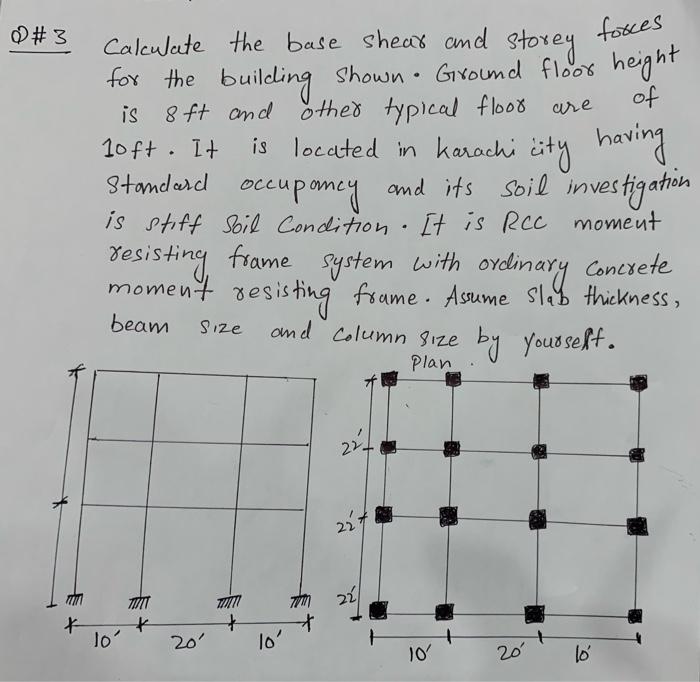 Q#3 Calculate the base shear and storey forces
for the building shown. Ground floor height
is 8 ft and other typical floor are of
10ft. It is located in Karachi city having
Standard occupancy and its soil investigation
is stiff Soil Condition. It is RCC moment
resisting frame system with ordinary Concrete
moment resisting frame. Assume slab thickness,
beam size and column size by yourself.
Plan
22'
22'
22'
10' 20' 10'
10' 20' 10'